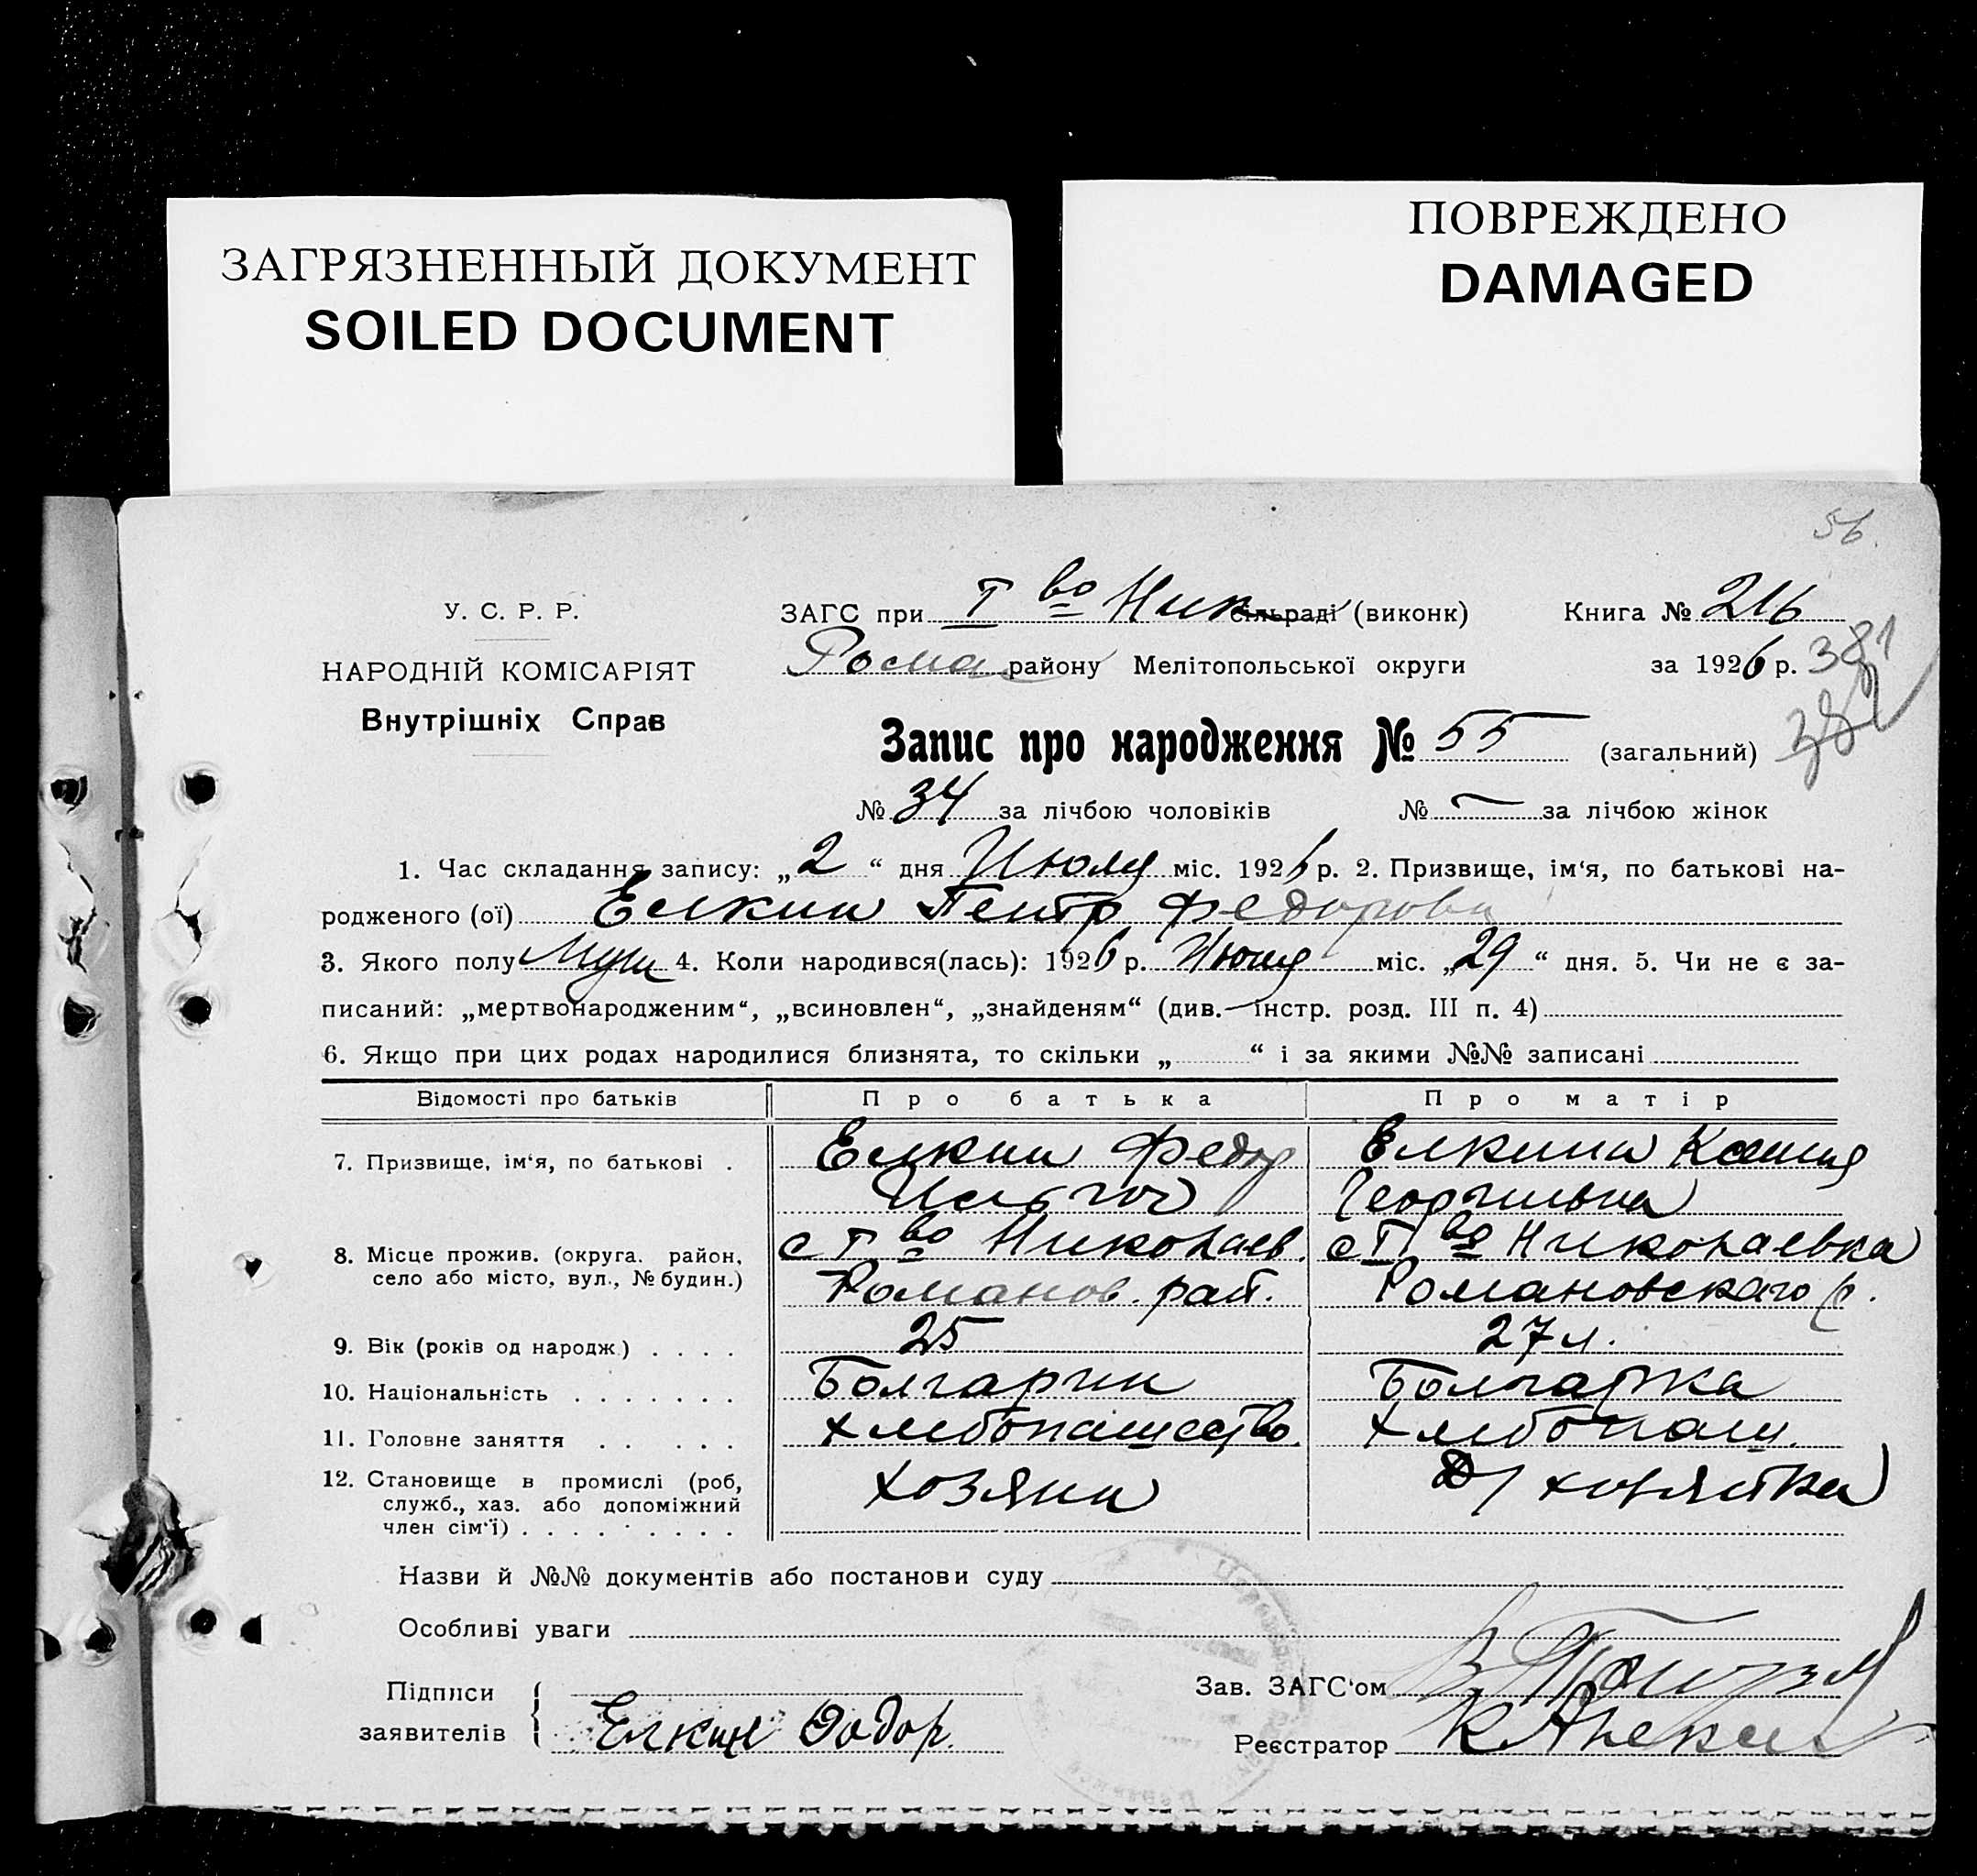 ЗАГРЯЗНЕННЫЙ ДОКУМЕНТ
SOILED DOCUMENT
ПОВРЕЖДЕНО
DAMAGED
56.
У. С. Р. Р.
НАРОДНІЙ КОМІСАРІЯТ
Внутрішніх Справ
ЗАГС при Т во Ник сільраді (виконк) Книга № 216
Рома району Мелітопольської округи за 1926 р. 381
382
Запис про народження № 55 (загальний)
№ 34 за лічбою чоловіків № — за лічбою жінок
1. Час складання запису: „2“ дня Июля міс. 1926 р. 2. Призвище, ім‘я, по батькові на-
родженого (ої) Елкин Петр Федорови
3. Якого полу Муж 4. Коли народився(лась): 1926 р. міс. „29“ дня. 5. Чи не є за-
писаний: „мертвонародженим“, „всиновлен“, „знайденям“ (див. — інстр. розд. III п. 4)
6. Якщо при цих родах народилися близнята, то скільки „ “ і за якими №№ записані
Відомості про батьків Про батька Про матір
7. Призвище, ім‘я, по батькові . Елкин Федор Елкина Ксения
Ильич Георгиевна
8. Місце прожив. (округа. район, село або місто, вул., № будин.) с Т во Николаев. с Т во Николаевка
Романов. рай. Романовскаго р.
9. Вік (років од народж.) . . . . 25 27 л.
10. Національність . . . . . . . Болгарин Болгарка
11. Головне заняття . . . . . Хлебопашество. Хлебопаш.
12. Становище в промислі (роб, служб., хаз. або допоміжний член сім‘ї) . . . . . . . . . хозяин Д/хозяйка
Назви й №№ документів або постанови суду
Особливі уваги
Підписи
заявителів Елкин Фодор.
Зав. ЗАГС‘ом
Реєстратор